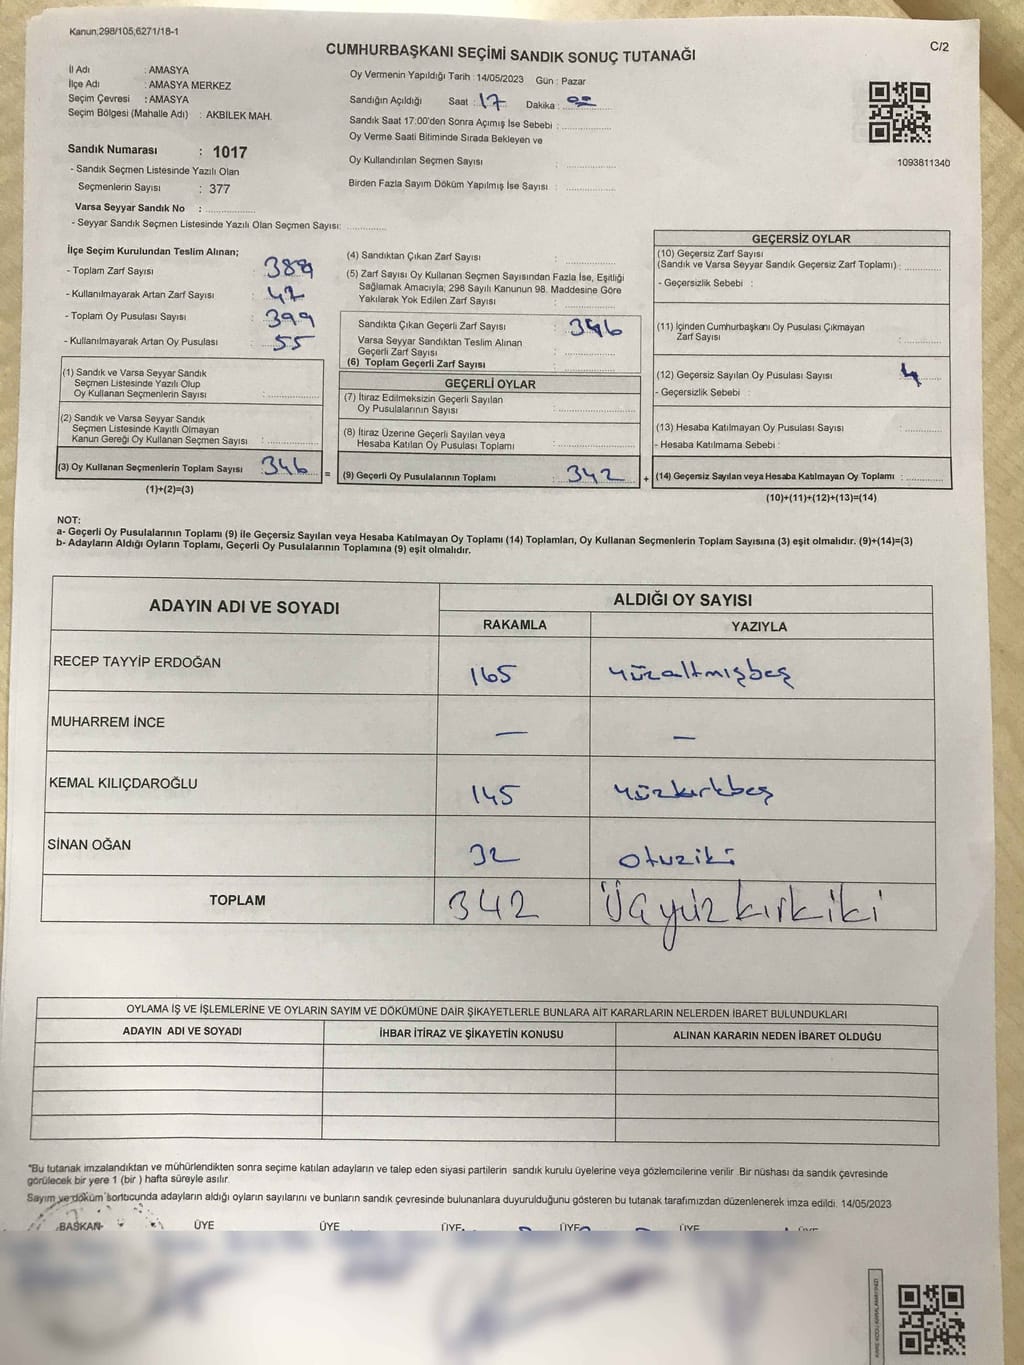 Kanun;298/105,6271/18-1
C/2
CUMHURBAŞKANI SEÇİMİ SANDIK SONUÇ TUTANAĞI
İl Adı : AMASYA
İlçe Adı : AMASYA MERKEZ
Seçim Çevresi : AMASYA
Seçim Bölgesi (Mahalle Adı) : AKBİLEK MAH.
Sandık Numarası : 1017
- Sandık Seçmen Listesinde Yazılı Olan
Seçmenlerin Sayısı : 377
Varsa Seyyar Sandık No :
- Seyyar Sandık Seçmen Listesinde Yazılı Olan Seçmen Sayısı:
Oy Vermenin Yapıldığı Tarih : 14/05/2023 Gün : Pazar
Sandığın Açıldığı Saat : 17 Dakika : 00
Sandık Saat 17:00'den Sonra Açımış İse Sebebi :
Oy Verme Saati Bitiminde Sırada Bekleyen ve
Oy Kullandırılan Seçmen Sayısı :
Birden Fazla Sayım Döküm Yapılmış İse Sayısı :
1093811340
İlçe Seçim Kurulundan Teslim Alınan;
- Toplam Zarf Sayısı :
- Kullanılmayarak Artan Zarf Sayısı : 42
- Toplam Oy Pusulası Sayısı : 399
- Kullanılmayarak Artan Oy Pusulası : 55
(1) Sandık ve Varsa Seyyar Sandık
Seçmen Listesinde Yazılı Olup
Oy Kullanan Seçmenlerin Sayısı :
(2) Sandık ve Varsa Seyyar Sandık
Seçmen Listesinde Kayıtlı Olmayan
Kanun Gereği Oy Kullanan Seçmen Sayısı :
(3) Oy Kullanan Seçmenlerin Toplam Sayısı : 346 =
(1)+(2)=(3)
(4) Sandıktan Çıkan Zarf Sayısı :
(5) Zarf Sayısı Oy Kullanan Seçmen Sayısından Fazla İse, Eşitliği
Sağlamak Amacıyla; 298 Sayılı Kanunun 98. Maddesine Göre
Yakılarak Yok Edilen Zarf Sayısı :
Sandıkta Çıkan Geçerli Zarf Sayısı : 346
Varsa Seyyar Sandıktan Teslim Alınan
Geçerli Zarf Sayısı :
(6) Toplam Geçerli Zarf Sayısı :
GEÇERLİ OYLAR
(7) İtiraz Edilmeksizin Geçerli Sayılan
Oy Pusulalarının Sayısı :
(8) İtiraz Üzerine Geçerli Sayılan veya
Hesaba Katılan Oy Pusulası Toplamı :
(9) Geçerli Oy Pusulalarının Toplamı : 342 +
GEÇERSİZ OYLAR
(10) Geçersiz Zarf Sayısı
(Sandık ve Varsa Seyyar Sandık Geçersiz Zarf Toplamı) :
- Geçersizlik Sebebi :
(11) İçinden Cumhurbaşkanı Oy Pusulası Çıkmayan
Zarf Sayısı :
(12) Geçersiz Sayılan Oy Pusulası Sayısı : 4
- Geçersizlik Sebebi :
(13) Hesaba Katılmayan Oy Pusulası Sayısı :
- Hesaba Katılmama Sebebi :
(14) Geçersiz Sayılan veya Hesaba Katılmayan Oy Toplamı :
(10)+(11)+(12)+(13)=(14)
NOT:
a- Geçerli Oy Pusulalarının Toplamı (9) ile Geçersiz Sayılan veya Hesaba Katılmayan Oy Toplamı (14) Toplamları, Oy Kullanan Seçmenlerin Toplam Sayısına (3) eşit olmalıdır. (9)+(14)=(3)
b- Adayların Aldığı Oyların Toplamı, Geçerli Oy Pusulalarının Toplamına (9) eşit olmalıdır.
ADAYIN ADI VE SOYADI ALDIĞI OY SAYISI
RAKAMLA YAZIYLA
RECEP TAYYİP ERDOĞAN 165 yüzaltmışbeş
MUHARREM İNCE — —
KEMAL KILIÇDAROĞLU 145 yüzkırkbeş
SİNAN OĞAN 32 otuziki
TOPLAM 342 Üçyüzkırkiki
OYLAMA İŞ VE İŞLEMLERİNE VE OYLARIN SAYIM VE DÖKÜMÜNE DAİR ŞİKAYETLERLE BUNLARA AİT KARARLARIN NELERDEN İBARET BULUNDUKLARI
ADAYIN ADI VE SOYADI İHBAR İTİRAZ VE ŞİKAYETİN KONUSU ALINAN KARARIN NEDEN İBARET OLDUĞU
"Bu tutanak imzalandıktan ve mühürlendikten sonra seçime katılan adayların ve talep eden siyasi partilerin sandık kurulu üyelerine veya gözlemcilerine verilir. Bir nüshası da sandık çevresinde
görülecek bir yere 1 (bir) hafta süreyle asılır.
Sayım ve döküm sonucunda adayların aldığı oyların sayılarını ve bunların sandık çevresinde bulunanlara duyurulduğunu gösteren bu tutanak tarafımızdan düzenlenerek imza edildi. 14/05/2023
BAŞKAN ÜYE ÜYE ÜYE ÜYE ÜYE ÜYE